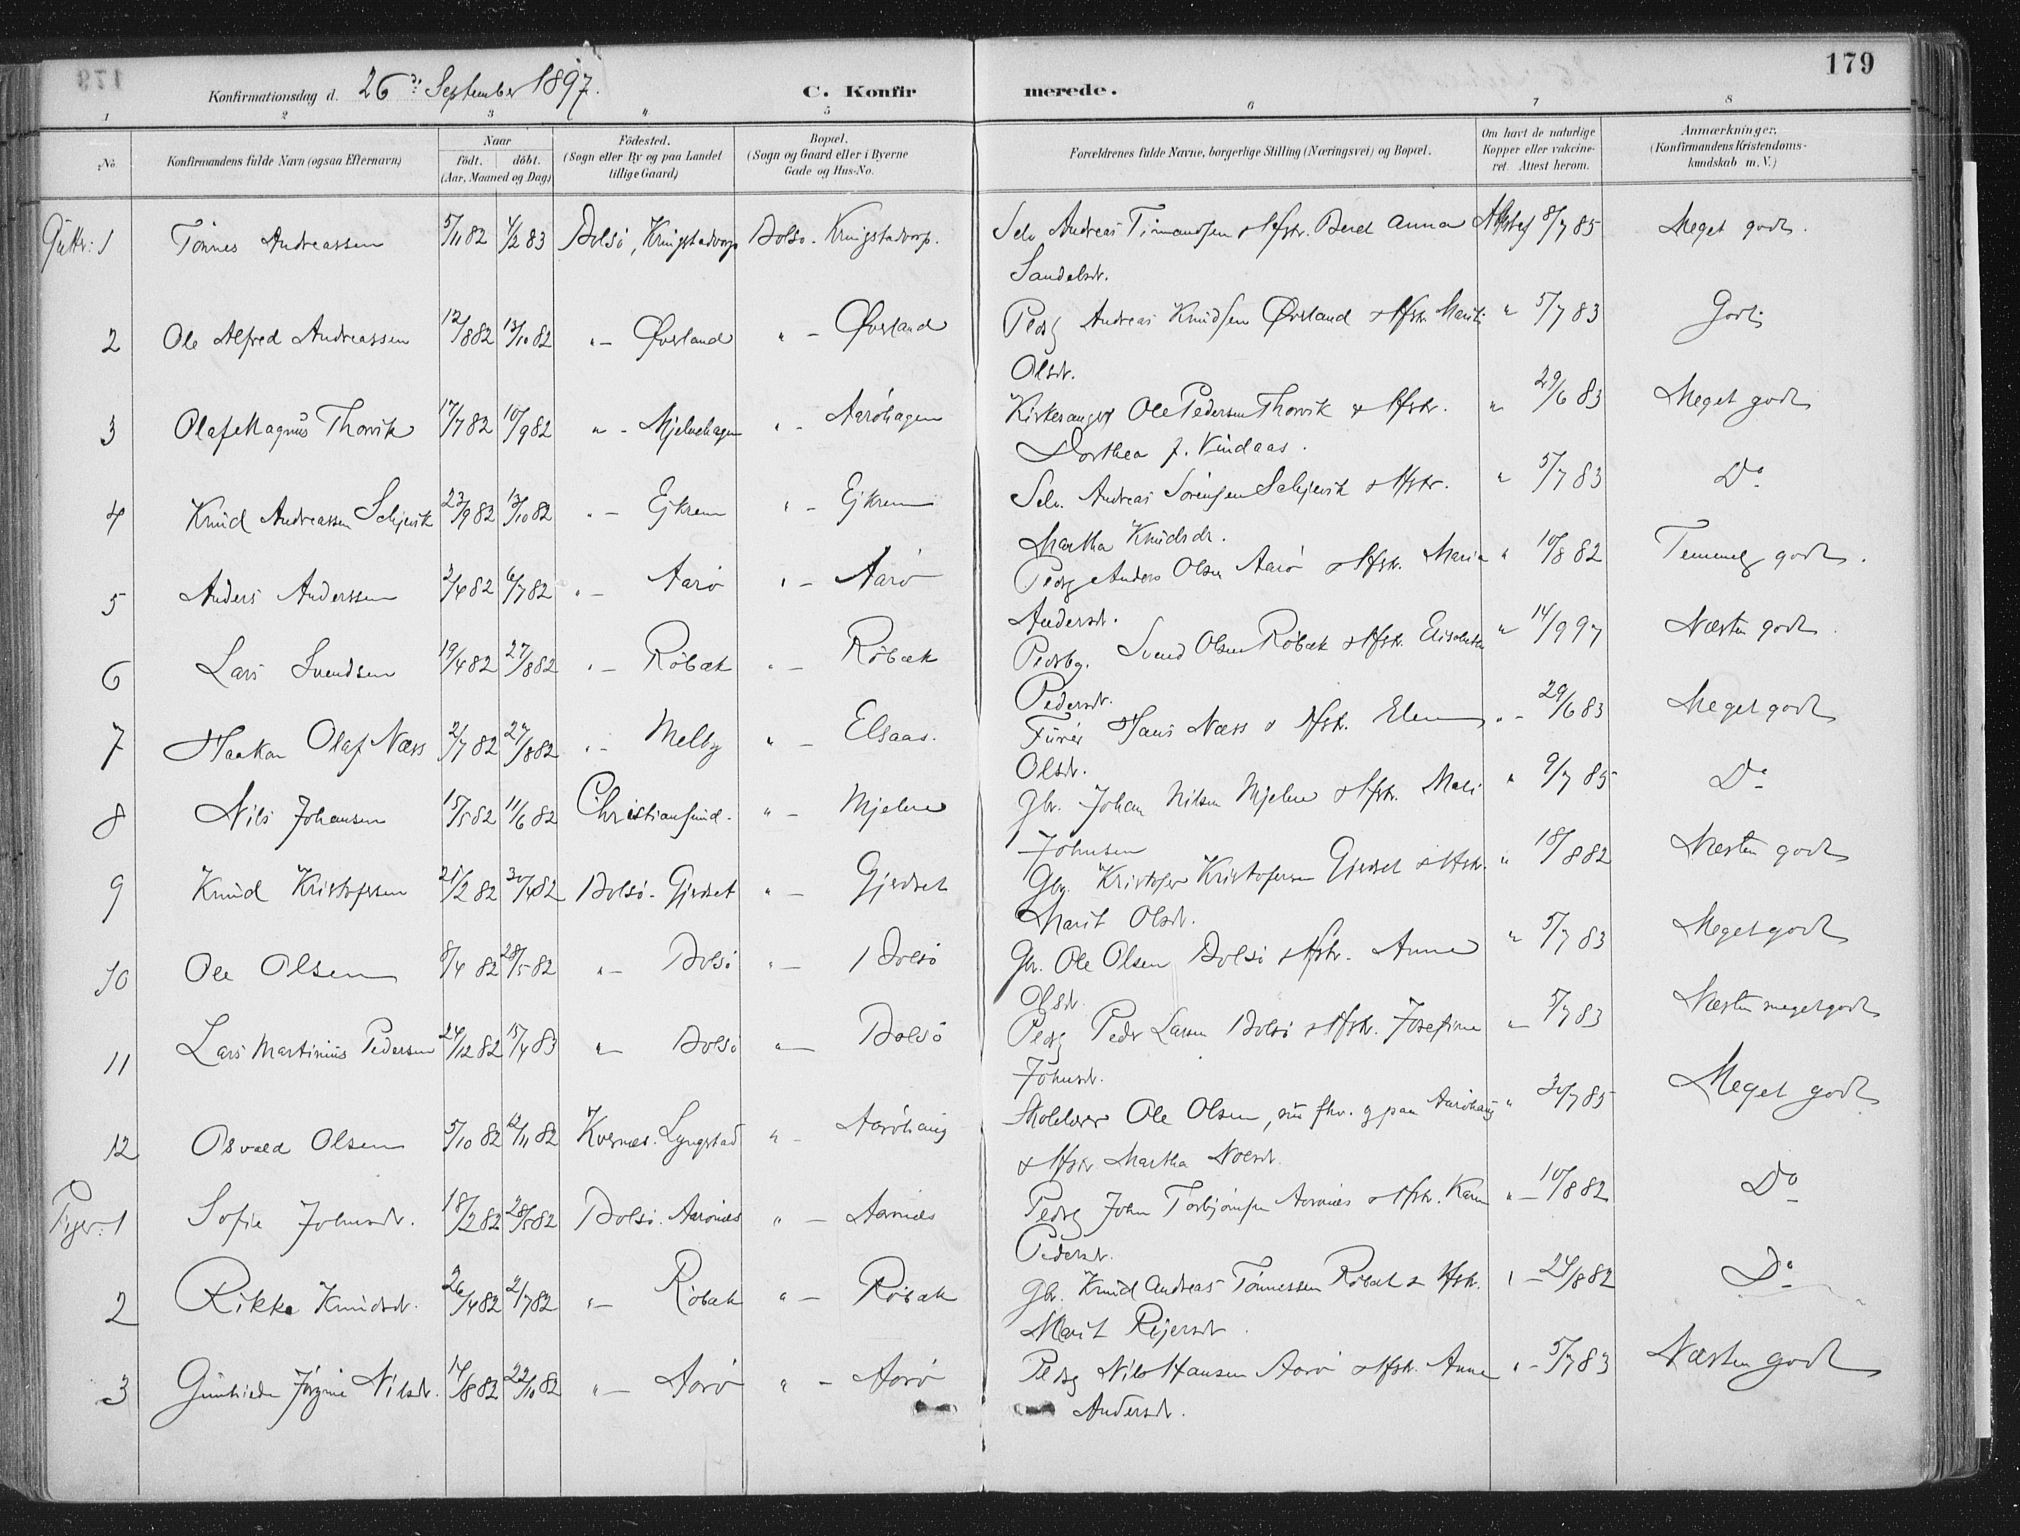 179
Konfirmationsdag d. 26de September 1897. C. Konfirmerede.
1 2 3 4 5 6 7 8
No. Konfirmandens fulde Navn (ogsaa Efternavn) Naar født. døbt. (Aar, Maaned og Dag) Fødested. (Sogn eller By og paa Landet tillige Gaard) Bopæl. (Sogn og Gaard eller i Byerne Gade og Hus-No. Forældrenes fulde Navne, borgerlige Stilling (Næringsvei) og Bopæl. Om havt de naturlige Kopper eller vakcineret. Attest herom. Anmærkninger. (Konfirmandens Kristendomskundskab m. V.)
Gutter: 1 Tönnes Andreassen 5/11 82 1/2 83 Bolsö, Bolsö. Selv. Andreas & Hstr. Beret Anna 8/7 85 Meget godt.
Sandelsdr.
2 Ole Alfred Andreassen 12/8 82 13/10 82 " – Øverland " – Øverland Andreas Knudsen Øverland & Hstr. Marit " 5/7 83 Godt
Olsdr.
3 Olaf Magnus Thorvik 17/7 82 10/9 82 " – Mjelvehagen " – Aaröhagen Kirkesanger Ole Pedersen Thorvik & Hstr. " 29/6 83 Meget godt
Dorthea f. Vindaas.
4 Knud Andreassen 23/9 82 13/10 82 " – Ejkrem " – Ejkrem Selv. Andreas Sörensen & Hstr. " 5/7 83 Do
Martha Knudsdr.
5 Anders Anderssen 2/4 82 6/7 82 " – Aarö " – Aarö Anders Olsen Aarö & Hstr. Maria " 10/8 82 Temmelig godt.
Andersdr.
6 Lars Svendsen 19/4 82 27/8 82 " – Röbæk " – Röbæk Svend Olsen Röbæk & Hstr. Elisabeth " 14/9 97 Næsten godt.
Pedersdr.
7 Haakon Olaf Næss 2/7 82 27/8 82 " – Melby " – Elsaas. Furer Hans Næss & Hstr. Elen " – 29/6 83 Meget godt
Olsdr.
8 Nils Johansen 15/5 82 11/6 82 Christiansund. " – Mjelve Gbr. Johan Nilsen Mjelve & Hstr. Mali " 9/7 85 Do
Johnsen
9 Knud Kristofersen 21/2 82 30/4 82 Bolsö. Gjerdset " – Gjerdset Gbr. Kristofer Kristofersen Gjerdset & Hstr. " 18/8 82 Næsten godt
Marit Olsdr.
10 Ole Olsen 8/4 82 28/5 82 " – Bolsö " – Bolsö Gbr. Ole Olsen Bolsö & Hstr. Anne " 5/7 83 Meget godt
Olsdr.
11 Lars Martinius Pedersen 24/12 82 15/4 83 " – Bolsö " – Bolsö Peder Larsen Bolsö & Hstr. Josefine " 5/7 83 Næsten meget godt
Johnsdr.
12 Osvald Olsen 5/10 82 12/11 82 Kvernes. Lyngstad " – Aaröhaug Skolelærer Ole Olsen, " 30/7 85 Meget godt
& Hstr. Martha
Piger: 1 Sofie Johnsdr. 18/2 82 28/5 82 Bolsö. Aarönes " – Aarönes John Torbjörnsen Aarönes & Hstr. Karen " – 10/8 82 Do
Pedersdr.
2 Rikka Knudsdr. 26/4 82 2/7 82 " – Röbæk " – Röbæk Gbr. Knud Andreas Tönnessen Röbæk & Hstr. " – 24/8 82 Do
Marit
3 Jörgine Nilsdr. 14/8 82 22/10 82 " – Aarö " – Aarö Nils Hansen Aarö & Hstr. Anne " – 5/7 83 Næsten godt
Andersdr.